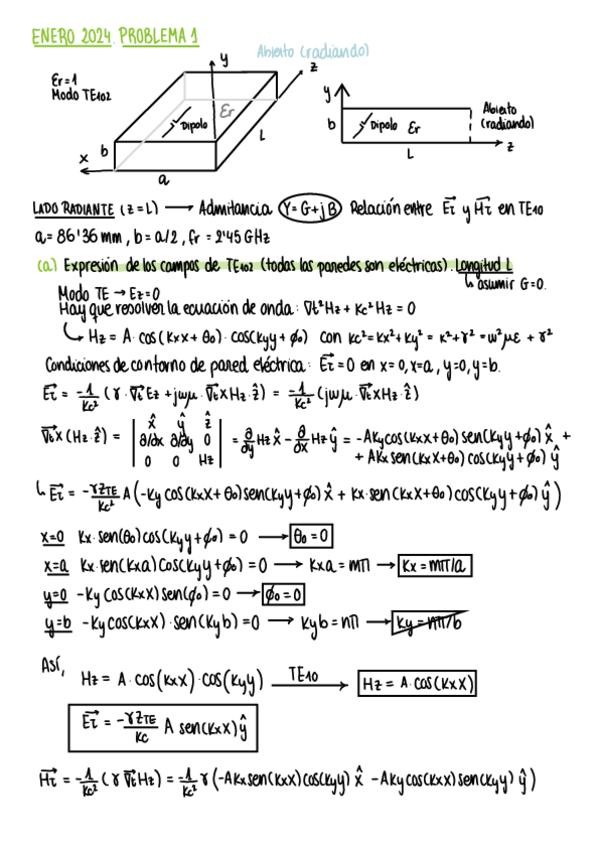 ENERO 2024. PROBLEMA 1
Abierto (radiando)
Er=1
Modo TE102
y
z
Er
Dipolo
b
L
x
a
y
b
Dipolo Er
Abierto
(radiando)
L
z
LADO RADIANTE (z=L) → Admitancia Y=G+jB Relación entre Et y Ht en TE10
a=86'36mm, b=a/2, fr=2'45GHz
(a) Expresión de los campos de TE102 (todas las paredes son eléctricas). Longitud L
↳ asumir G=0.
Modo TE → Ez=0
Hay que resolver la ecuación de onda: ∇t²Hz + Kc²Hz = 0
↳ Hz = A·cos(Kxx+θ0)·cos(Kyy+ϕ0) con Kc²=Kx²+Ky² = K²+γ² = ω²με + γ²
Condiciones de contorno de pared eléctrica: Et=0 en x=0, x=a, y=0, y=b.
Et = -1/Kc² (γ·∇tEz + jωμ·∇txHz·ẑ) = -1/Kc² (jωμ·∇txHz·ẑ)
∇tx(Hz·ẑ) = | x̂ ŷ ẑ | ∂/∂x ∂/∂y 0 | 0 0 Hz | = ∂/∂y Hz x̂ - ∂/∂x Hz ŷ = -AKycos(Kxx+θ0)sen(Kyy+ϕ0) x̂ +
+ AKx sen(Kxx+θ0)cos(Kyy+ϕ0) ŷ
↳ Et = -γZTE/Kc² A(-Ky cos(Kxx+θ0)sen(Kyy+ϕ0) x̂ + Kx·sen(Kxx+θ0)cos(Kyy+ϕ0) ŷ)
x=0 Kx·sen(θ0)cos(Kyy+ϕ0) = 0 → θ0=0
x=a Kx·sen(Kxa)cos(Kyy+ϕ0) = 0 → Kxa = mπ → Kx = mπ/a
y=0 -Ky cos(Kxx)sen(ϕ0) = 0 → ϕ0=0
y=b -Ky cos(Kxx)·sen(Kyb) = 0 → Kyb = nπ → Ky = nπ/b
Así,
Hz = A·cos(Kxx)·cos(Kyy) TE10 → Hz = A·cos(Kxx)
Et = -γZTE/Kc A sen(Kxx) ŷ
Ht = -1/Kc² (γ ∇tHz) = -1/Kc² γ (-AKxsen(Kxx)cos(Kyy) x̂ -AKycos(Kxx)sen(Kyy) ŷ)